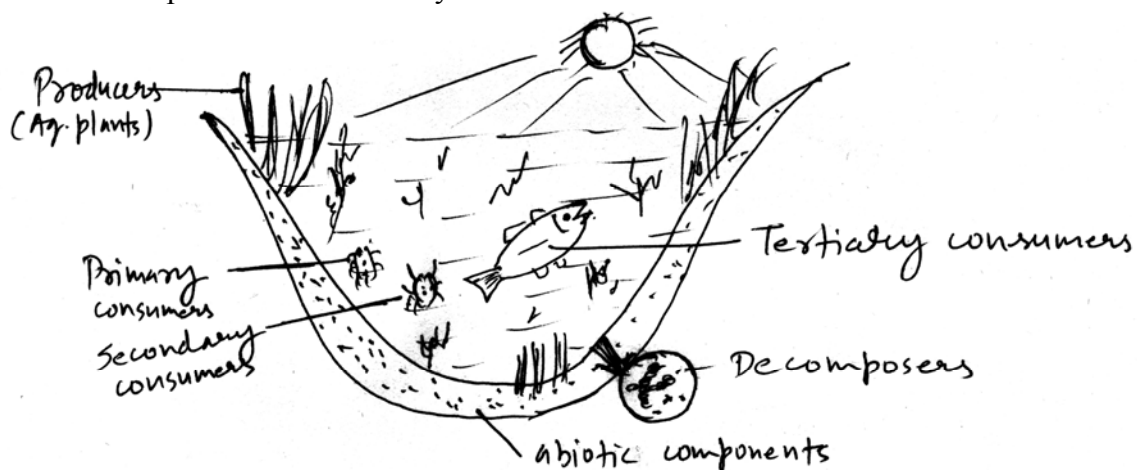 Producers
(Aq. plants)
Primary
consumers
Secondary
consumers
Tertiary consumers
Decomposers
abiotic components